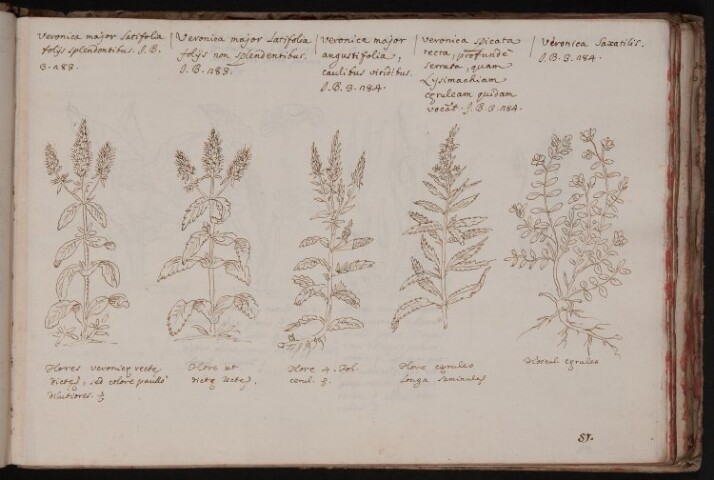 Veronica major latifolia
folijs splendentibus. J.B.
3. 283.
Veronica major latifolia
folijs non splendentibus.
J.B. 283.
Veronica major
angustifolia,
caulibus viridibus.
J.B. 3. 284.
Veronica spicata
recta, profunde
serrata, quam
Lysimachiam
cęruleam quidam
vocāt. J.B. 3. 284.
Veronica saxatilis.
J.B. 3. 284.
Flores veronicę rectę
dictę, sed colore paullo
dilutiores.
Flore ut
dictę rectę.
Flore 4. fol.
cerul.
Flore cęruleo
longa
Floscul. cęruleo
81.